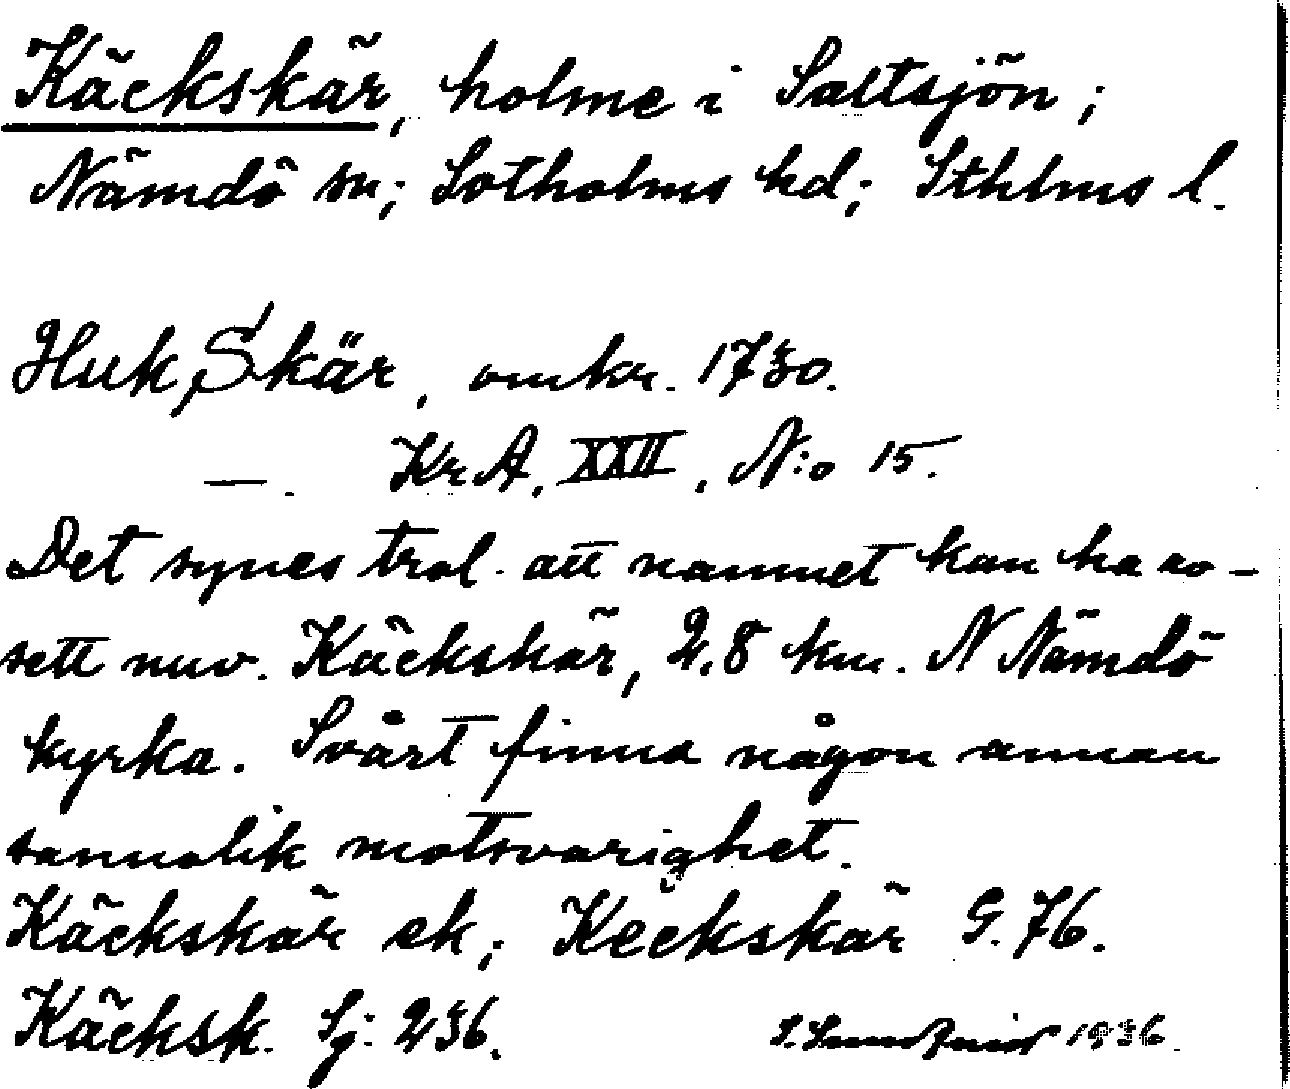 Käckskär, holme i Saltsjön;
Nämdö sn; Sotholms hd; Sthlms l.
Huk, Skär, omkr. 1730.
—. KrA, XXII, N:o 15.
Det synes trol. att namnet kan ha av-
sett nuv. Käckskär, 2,8 km. N Nämdö
kyrka. Svårt finna någon annan
sannolik motsvarighet.
Käckskär ek; Keckskär G. 76.
Käcksk. Sj: 236.
1936.